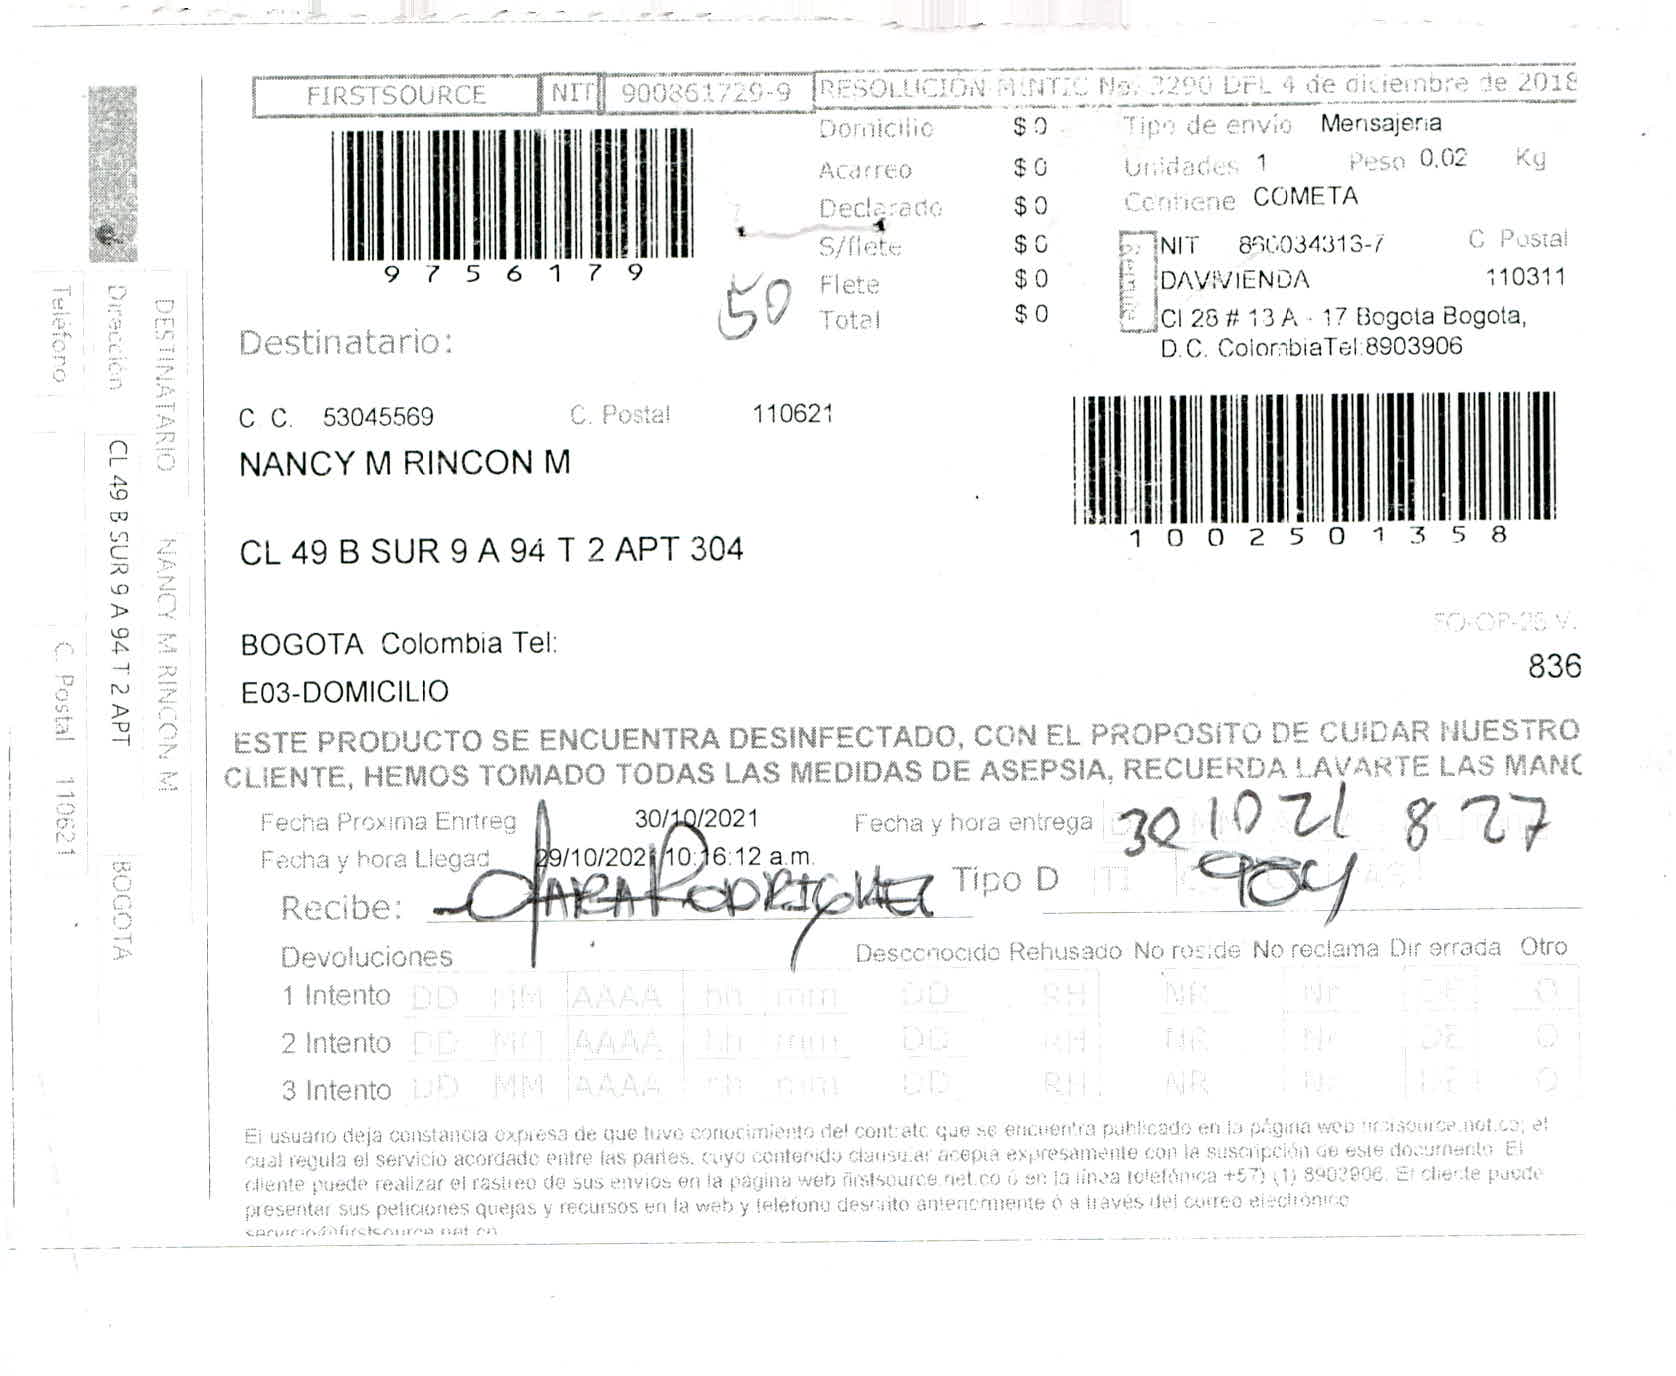 FIRSTSOURCE NIT 900861729-9 RESOLUCIÓN MINTIC No. 3290 DEL 4 de diciembre de 2018
9756179
50
Domicilio $ 0
Acarreo $ 0
Declarado $ 0
S/flete $ 0
Flete $ 0
Total $ 0
Tipo de envío Mensajeria
Unidades 1 Peso 0,02 Kg
Contiene COMETA
Remite
NIT 860034313-7 C Postal
DAVIVIENDA 110311
Cl 28 # 13 A - 17 Bogota Bogota,
D.C. ColombiaTel:8903906
Destinatario:
C C. 53045569 C. Postal 110621
NANCY M RINCON M
1002501358
CL 49 B SUR 9 A 94 T 2 APT 304
BOGOTA Colombia Tel:
E03-DOMICILIO
FO-OP-25 V.
836
ESTE PRODUCTO SE ENCUENTRA DESINFECTADO, CON EL PROPOSITO DE CUIDAR NUESTRO
CLIENTE, HEMOS TOMADO TODAS LAS MEDIDAS DE ASEPSIA, RECUERDA LAVARTE LAS MANO
Fecha Proxima Enrtreg 30/10/2021 Fecha y hora entrega 30 10 21 8 27
Fecha y hora Llegad 29/10/2021 10:16:12 a.m.
Recibe: CLARA RODRIGUEZ Tipo D TI 904
Devoluciones Desconocido Rehusado No reside No reclama Dir errada Otro
1 Intento DD MM AAAA hh mm DD RH NR Nr DE O
2 Intento DD MM AAAA hh mm DD RH NR Nr DE O
3 Intento DD MM AAAA hh mm DD RH NR Nr DE O
El usuario deja constancia expresa de que tuvo conocimiento del contrato que se encuentra publicado en la página web firstsource.net.co; el
cual regula el servicio acordado entre las partes, cuyo contenido clausular acepta expresamente con la suscripción de este documento El
cliente puede realizar el rastreo de sus envios en la página web firstsource.net.co ó en la línea telefónica +57) (1) 8903906. El cliente puede
presentar sus peticiones quejas y recursos en la web y telefono descrito anteriormente ó a través del correo electrónico
servicio@firstsource.net.co
DESTINATARIO NANCY M RINCON M
Dirección CL 49 B SUR 9 A 94 T 2 APT BOGOTA
Teléfono C. Postal 110621